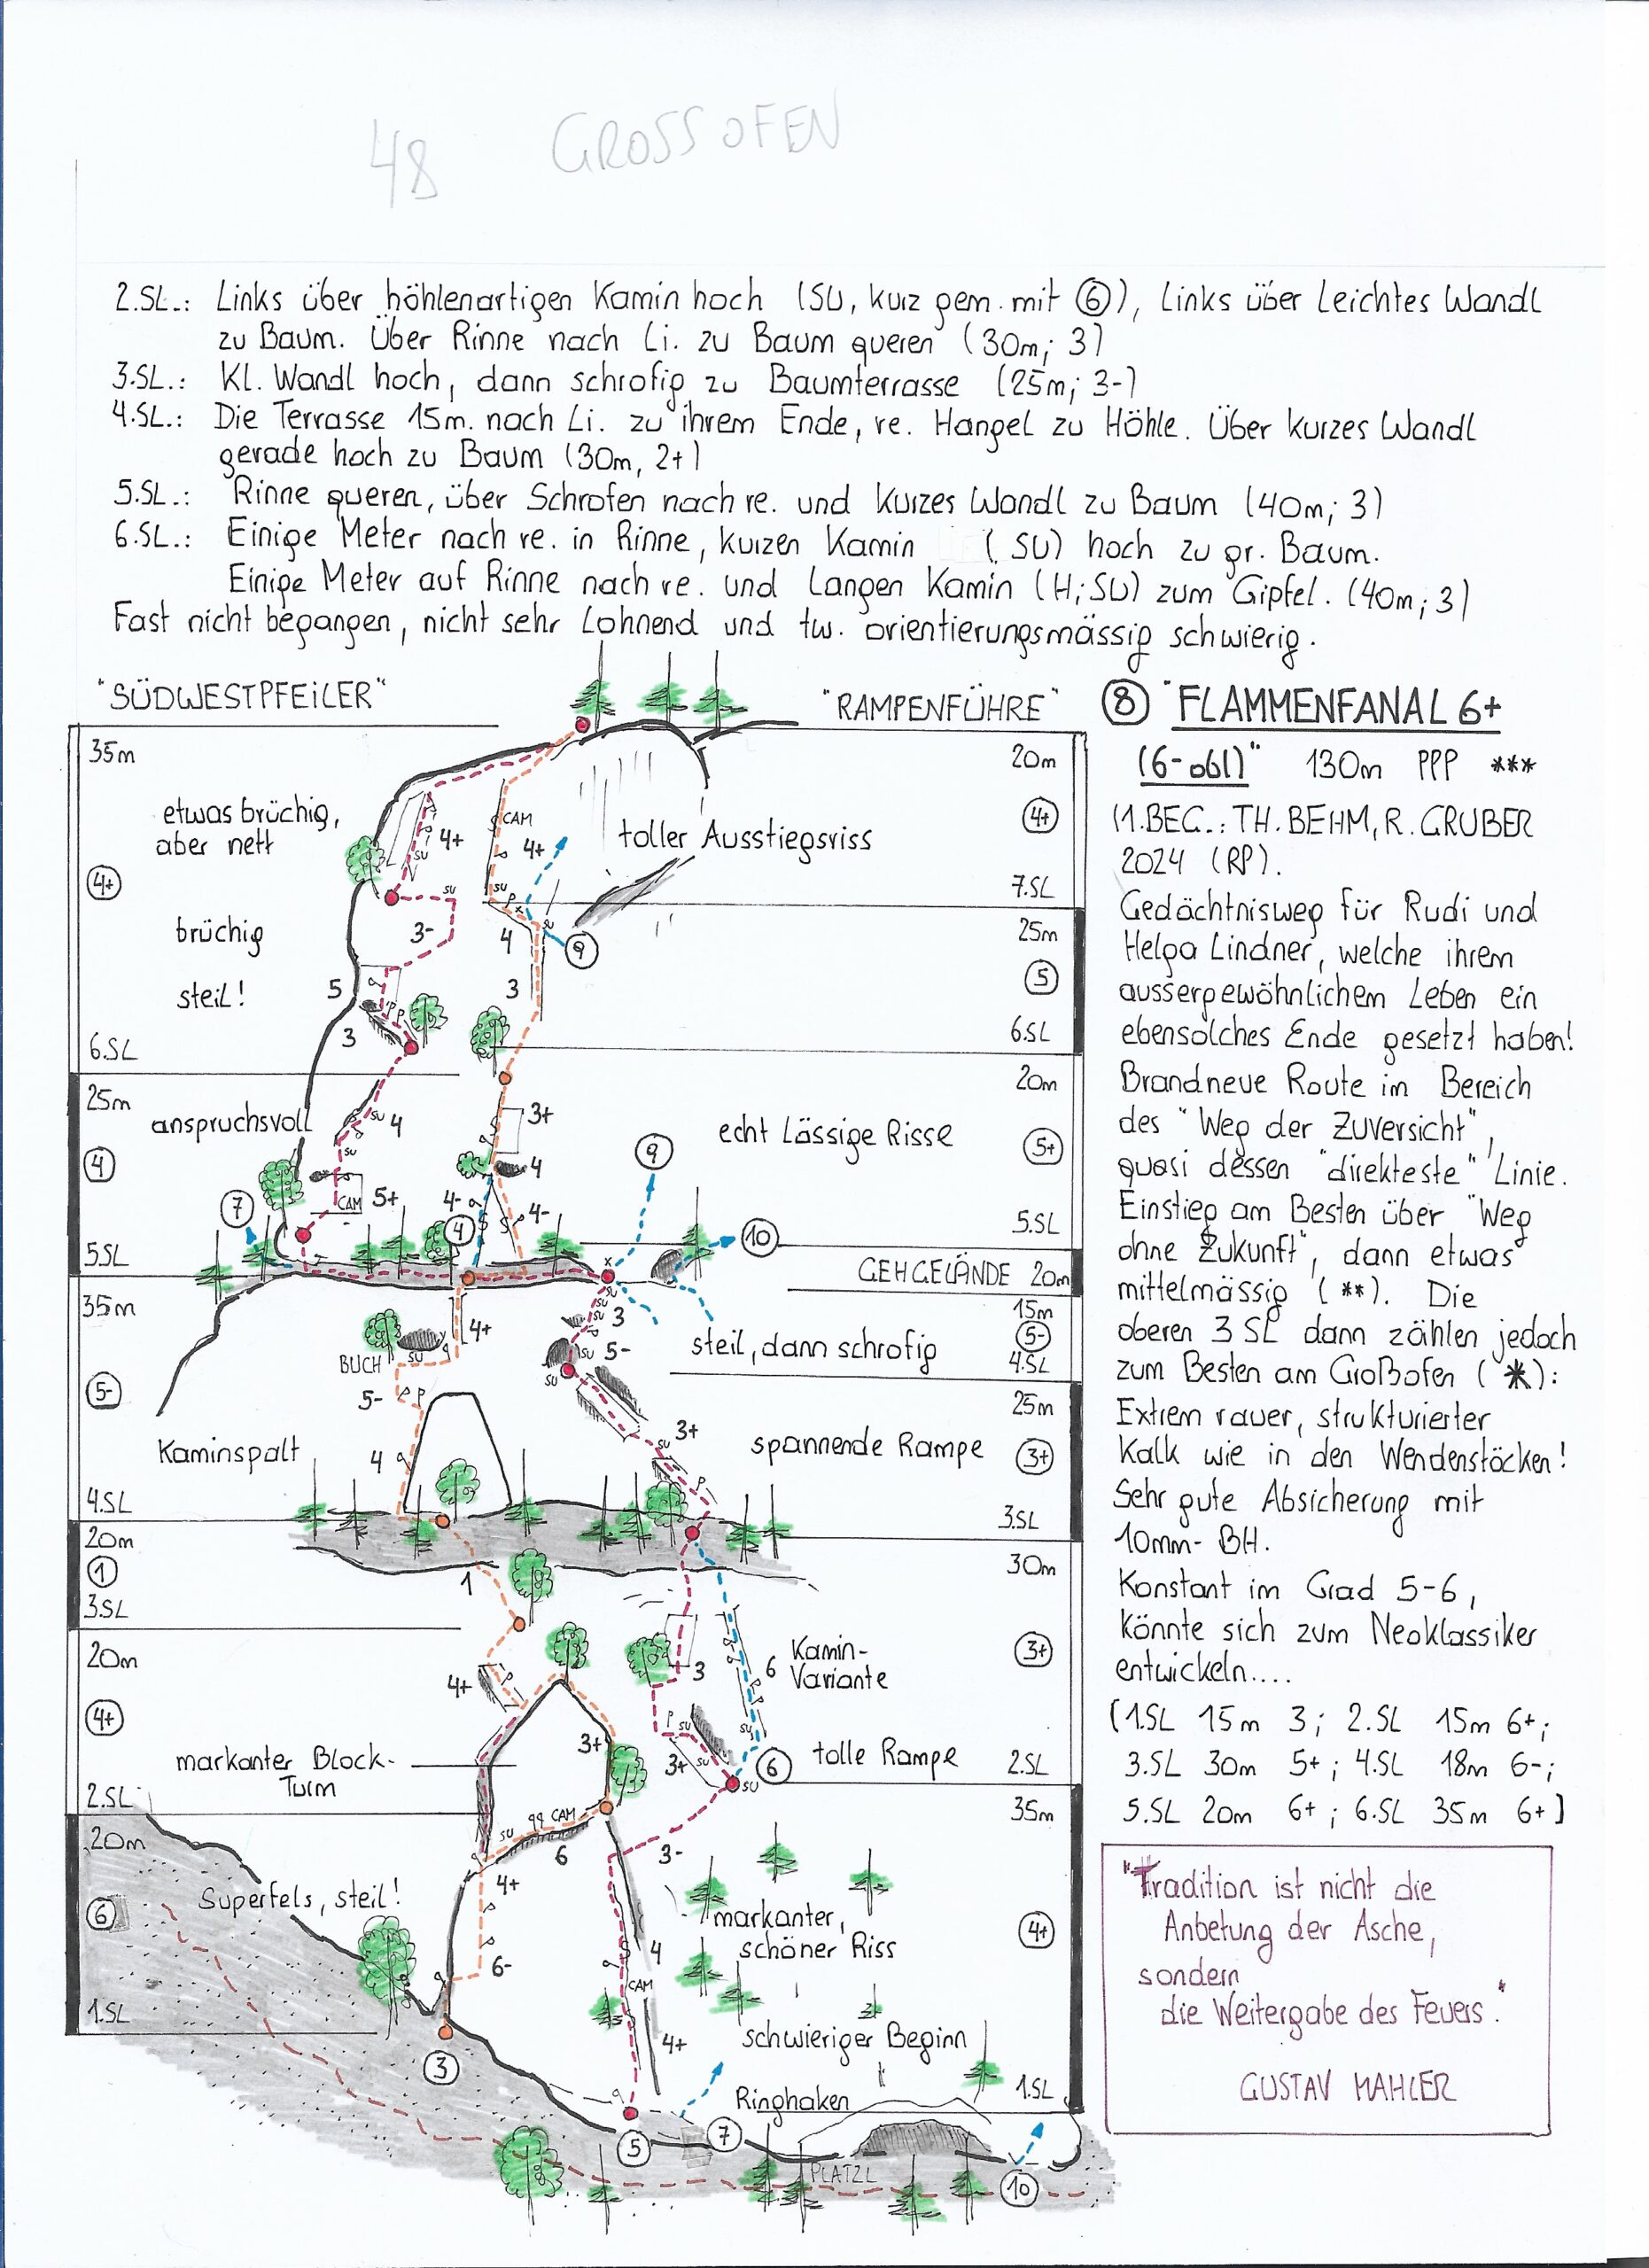 48 GROSSOFEN
2.SL.: Links über höhlenartigen Kamin hoch (SU, kurz gem. mit ⑥), Links über Leichtes Wandl
zu Baum. Über Rinne nach Li. zu Baum queren (30m; 3)
3.SL.: Kl. Wandl hoch, dann schrofig zu Baumterrasse (25m; 3-)
4.SL.: Die Terrasse 15m. nach Li. zu ihrem Ende, re. Hangel zu Höhle. Über kurzes Wandl
gerade hoch zu Baum (30m, 2+)
5.SL.: Rinne queren, über Schrofen nach re. und kurzes Wandl zu Baum (40m; 3)
6.SL.: Einige Meter nach re. in Rinne, kurzen Kamin (SU) hoch zu gr. Baum.
Einige Meter auf Rinne nach re. und Langen Kamin (H; SU) zum Gipfel. (40m; 3)
Fast nicht begangen, nicht sehr Lohnend und tw. orientierungsmässig schwierig.
"SÜDWESTPFEILER"
"RAMPENFÜHRE"
35m
etwas brüchig,
aber nett
4+
brüchig
steil!
6.SL
25m
anspruchsvoll
4
5.SL
35m
5-
Kaminspalt
4.SL
20m
1
3.SL
20m
4+
markanter Block-
Turm
2.SL
20m
Superfels, steil!
6
1.SL
4+
SU
SU
3-
5
P P
3
SU
4
SU
CAM
5+
7
CAM
4+
SU
P
x
SU
4
9
3
3+
4
4-
4-
4
9
10
x
SU
SU
SU
3
SU
5-
SU
4+
SU
BUCH
5-
P P
4
3+
SU
P
1
4+
P
3+
SU
CAM
6
4+
6-
3
3
6
P P
SU
P
SU
3+
SU
SU
6
3-
4
CAM
4+
5
7
PLATZL
10
20m
4+
toller Ausstiegsriss
7.SL
25m
5
6.SL
20m
echt Lässige Risse
5+
5.SL
GEHGELÄNDE 20m
15m
5-
steil, dann schrofig
4.SL
25m
spannende Rampe
3+
3.SL
30m
Kamin-
Variante
3+
tolle Rampe
2.SL
35m
markanter,
schöner Riss
4+
schwieriger Beginn
Ringhaken
1.SL
⑧ "FLAMMENFANAL 6+
(6-obl)" 130m PPP ***
(1.BEG.: TH. BEHM, R. GRUBER
2024 (RP).
Gedächtnisweg für Rudi und
Helga Lindner, welche ihrem
aussergewöhnlichem Leben ein
ebensolches Ende gesetzt haben!
Brandneue Route im Bereich
des "Weg der Zuversicht",
quasi dessen "direkteste" Linie.
Einstieg am Besten über "Weg
ohne Zukunft", dann etwas
mittelmässig (**). Die
oberen 3 SL dann zählen jedoch
zum Besten am Großofen (*):
Extrem rauer, strukturierter
Kalk wie in den Wendenstöcken!
Sehr gute Absicherung mit
10mm- BH.
Konstant im Grad 5-6,
könnte sich zum Neoklassiker
entwickeln....
(1.SL 15m 3; 2.SL 15m 6+;
3.SL 30m 5+; 4.SL 18m 6-;
5.SL 20m 6+; 6.SL 35m 6+)
"Tradition ist nicht die
Anbetung der Asche,
sondern
die Weitergabe des Feuers."
GUSTAV MAHLER